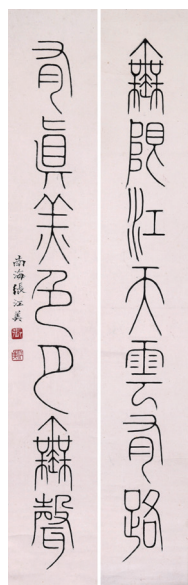 無限江天雲有路
有真美色月無聲
南海張江美